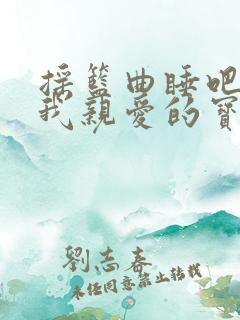 摇籃曲睡吧
我親愛的寶
劉志春
未经同意禁止转载